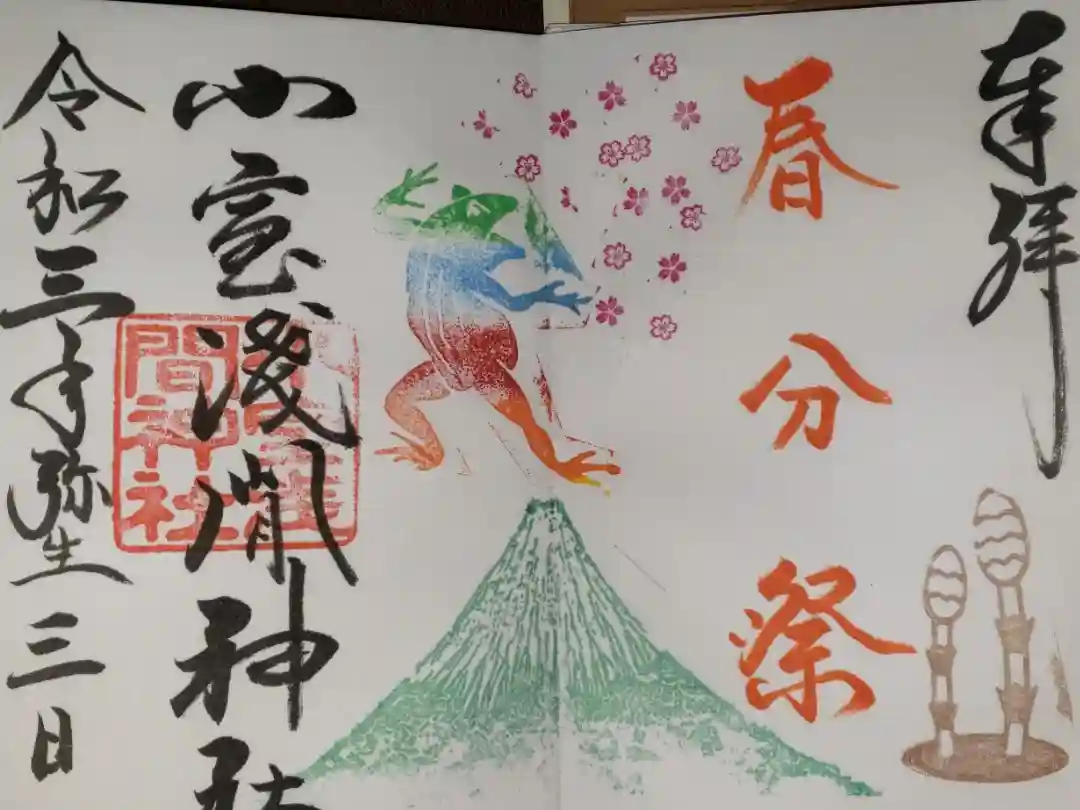 奉拝
春分祭
小室淺間神社
間神社
令和三年弥生三日